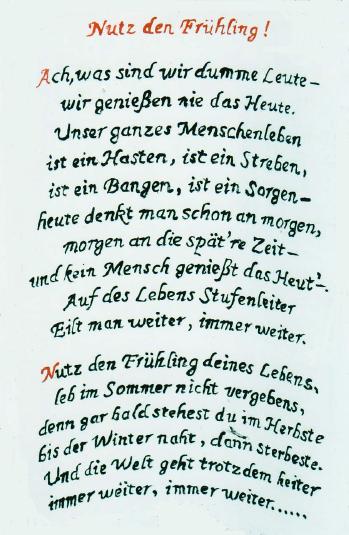 Nutz den Frühling!
Ach, was sind wir dumme Leute –
wir genießen nie das Heute.
Unser ganzes Menschenleben
ist ein Hasten, ist ein Streben,
ist ein Bangen, ist ein Sorgen –
heute denkt man schon an morgen,
morgen an die spät're Zeit –
und kein Mensch genießt das Heut' –.
Auf des Lebens Stufenleiter
Eilt man weiter, immer weiter.
Nutz den Frühling deines Lebens,
leb im Sommer nicht vergebens,
denn gar bald stehest du im Herbste
bis der Winter naht, dann sterbeste.
Und die Welt geht trotzdem heiter
immer weiter, immer weiter......